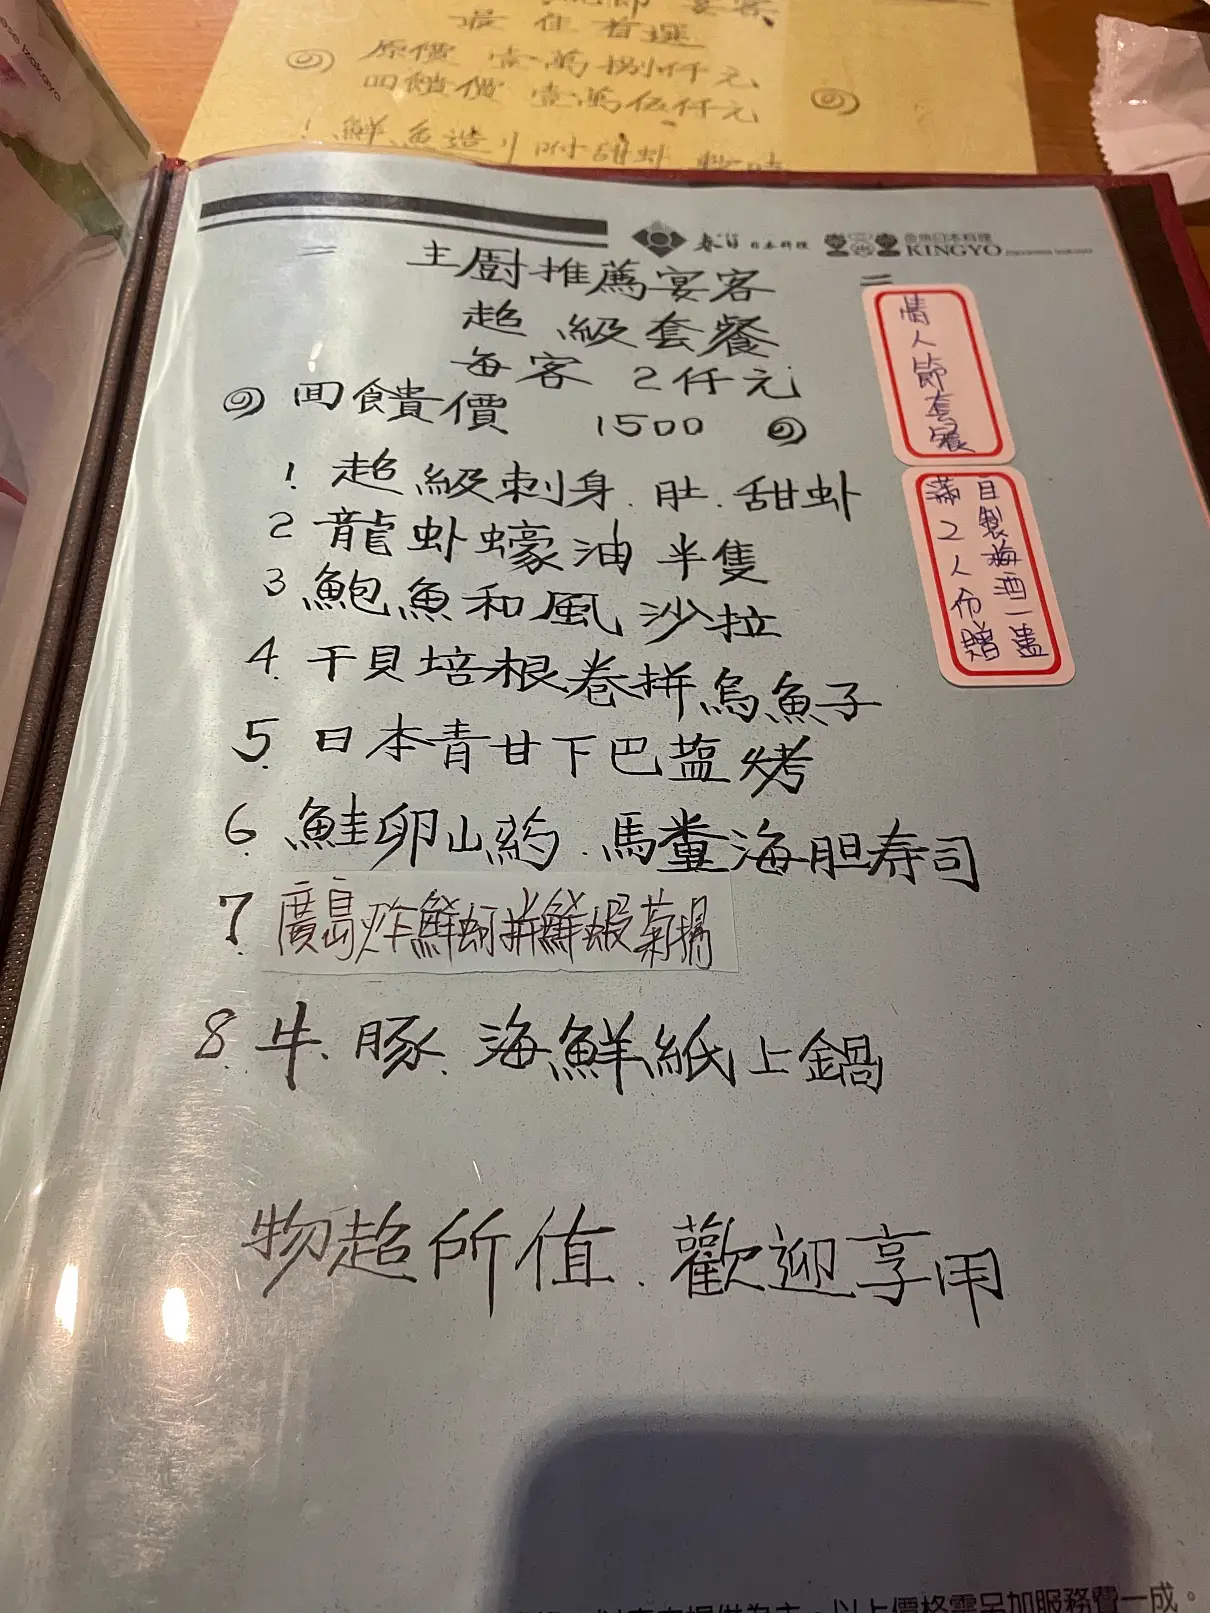 最佳首選
原價 壹萬捌仟元
回饋價 壹萬伍仟元
春日 日本料理
金魚日本料理
KINGYO
= 主廚推薦宴客 =
超級套餐
每客 2仟元
回饋價 1500
1 超級刺身.肚.甜虾
2 龍虾蠔油 半隻
3 鮑魚和風沙拉
4. 干貝培根卷拼烏魚子
5. 日本青甘下巴蓝烤
6. 鮭卵山葯.馬糞海胆寿司
7. 廣島炸鮮蚵拼鮮蝦菊揚
8. 牛.豚.海鮮紙上鍋
物超所值.歡迎享用
情人節套餐
自製梅酒一壺
滿2人份贈
以上價格需另加服務費一成。